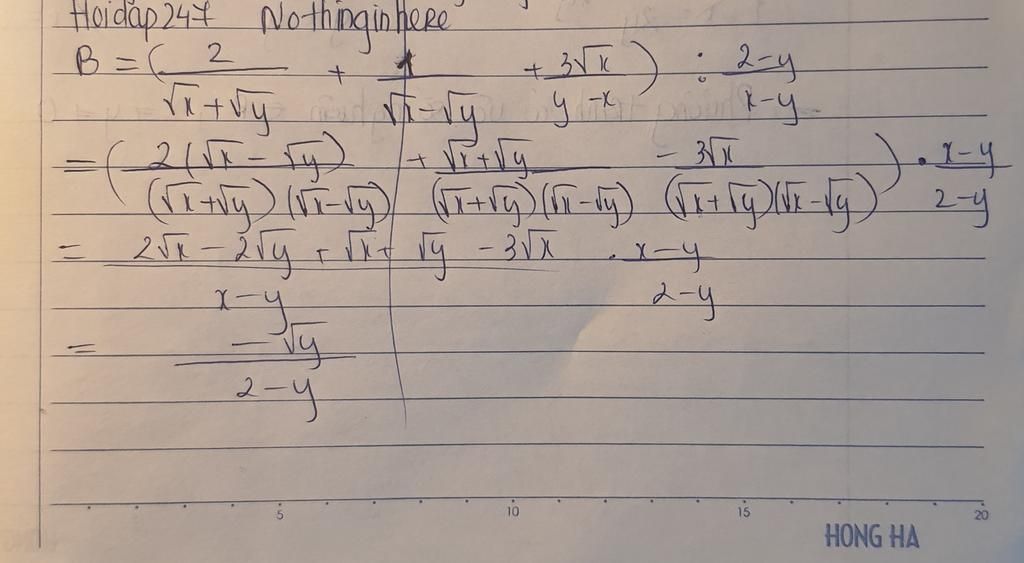 Hoidap247 Nothinginhere
B = ( 2/(√x+√y) + 1/(√x-√y) + 3√x/(y-x) ) : (2-y)/(x-y)
= ( 2(√x-√y)/((√x+√y)(√x-√y)) + (√x+√y)/((√x+√y)(√x-√y)) - 3√x/((√x+√y)(√x-√y)) ) . (x-y)/(2-y)
= (2√x-2√y+√x+√y-3√x)/(x-y) . (x-y)/(2-y)
= -√y/(2-y)
5 10 15 20
HONG HA